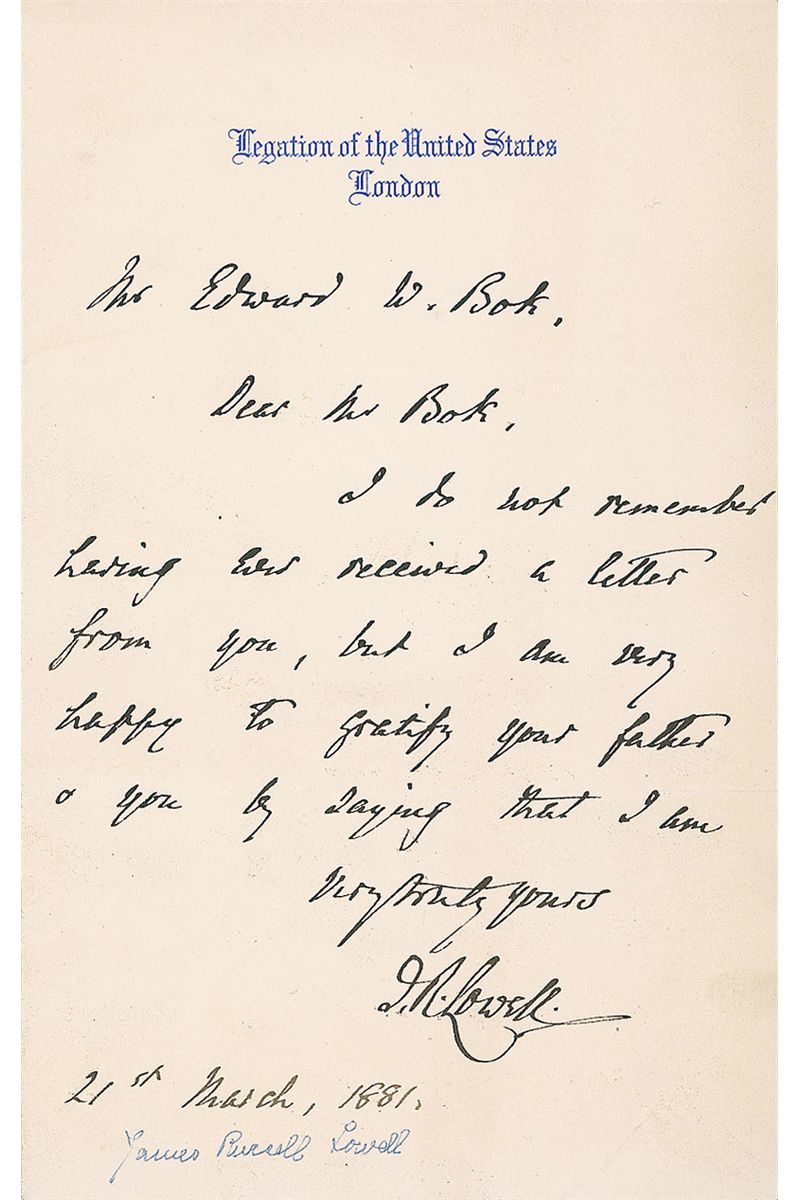 Legation of the United States
London
Mr Edward W. Bok,
Dear Mr Bok,
I do not remember
having ever received a letter
from you, but I am very
happy to gratify your father
& you by saying that I am
Very truly yours
J. R. Lowell.
21st March, 1881.
James Russell Lowell